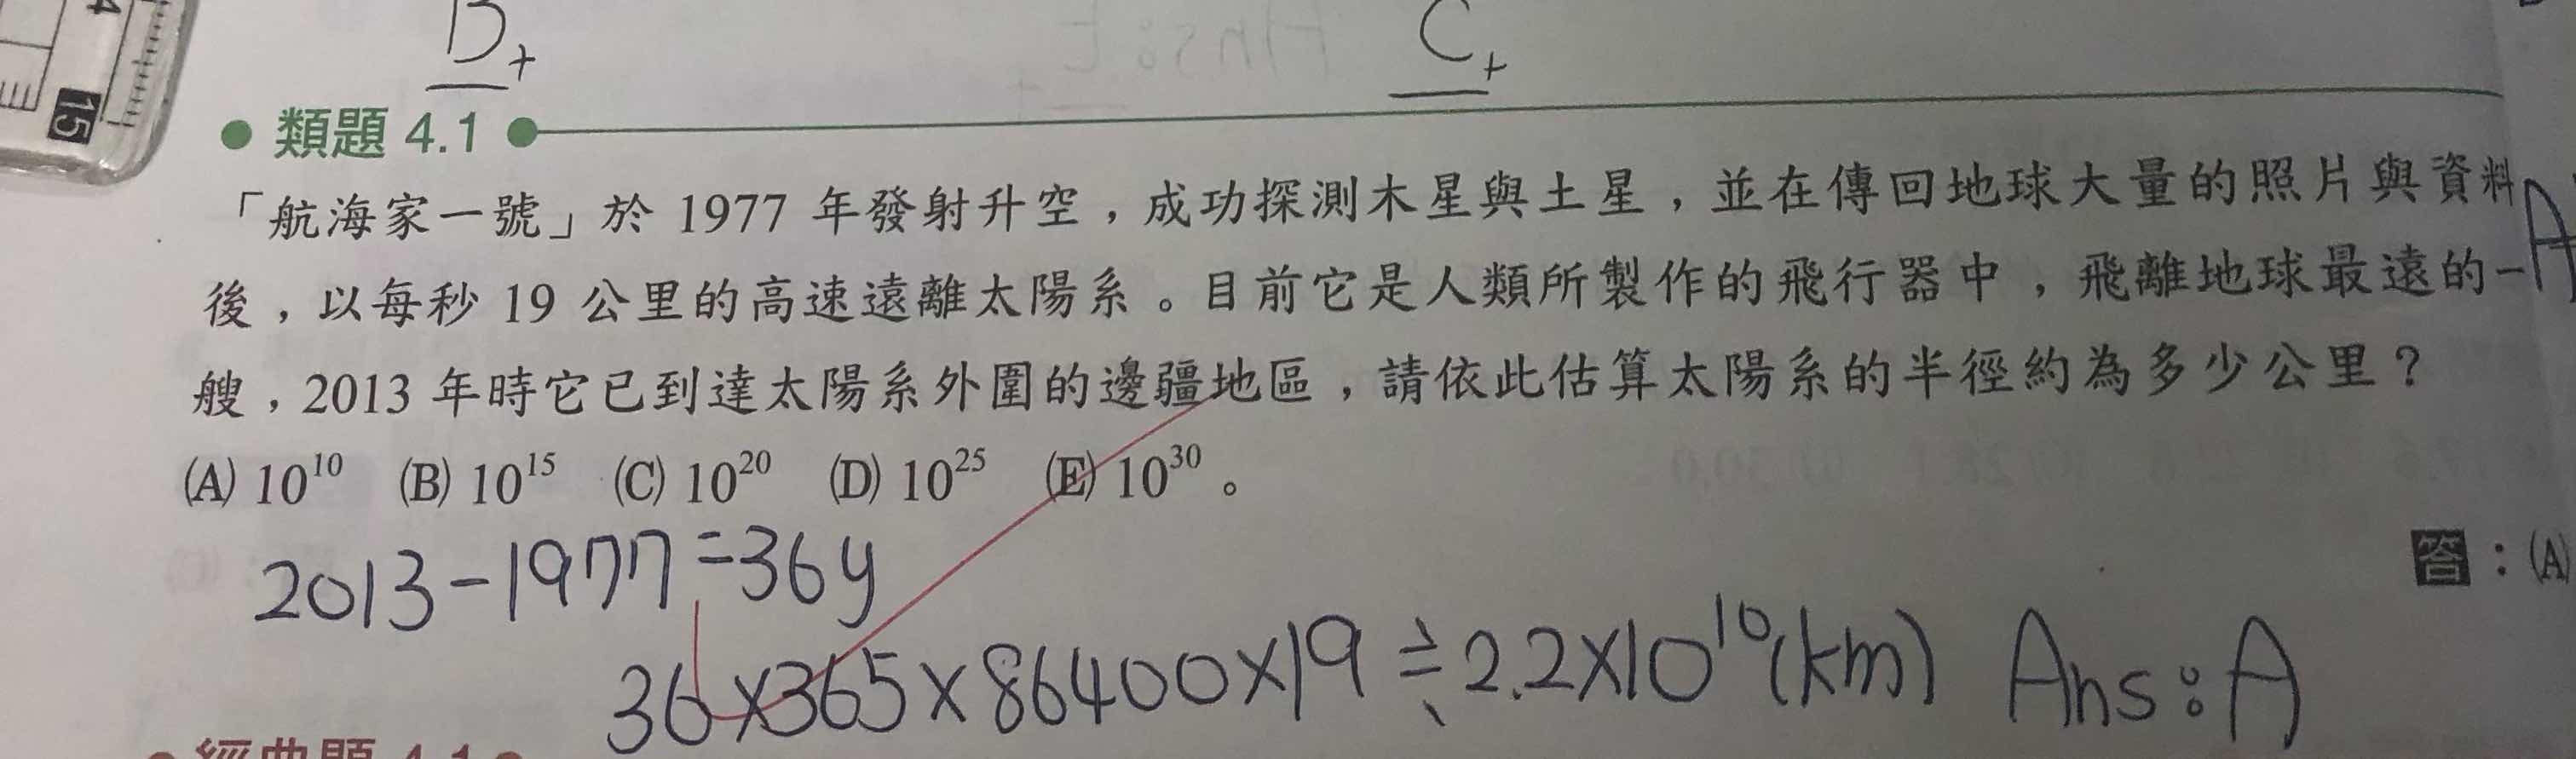 4
15
D+
C+
● 類題 4.1 ●
「航海家一號」於 1977 年發射升空，成功探測木星與土星，並在傳回地球大量的照片與資料
後，以每秒 19 公里的高速遠離太陽系。目前它是人類所製作的飛行器中，飛離地球最遠的一
艘，2013 年時它已到達太陽系外圍的邊疆地區，請依此估算太陽系的半徑約為多少公里？
(A) 10¹⁰ (B) 10¹⁵ (C) 10²⁰ (D) 10²⁵ (E) 10³⁰ 。
答：(A)
2013-1977=36y
36×365×86400×19≒2.2×10¹⁰(km) Ans:A
經典題 4.1